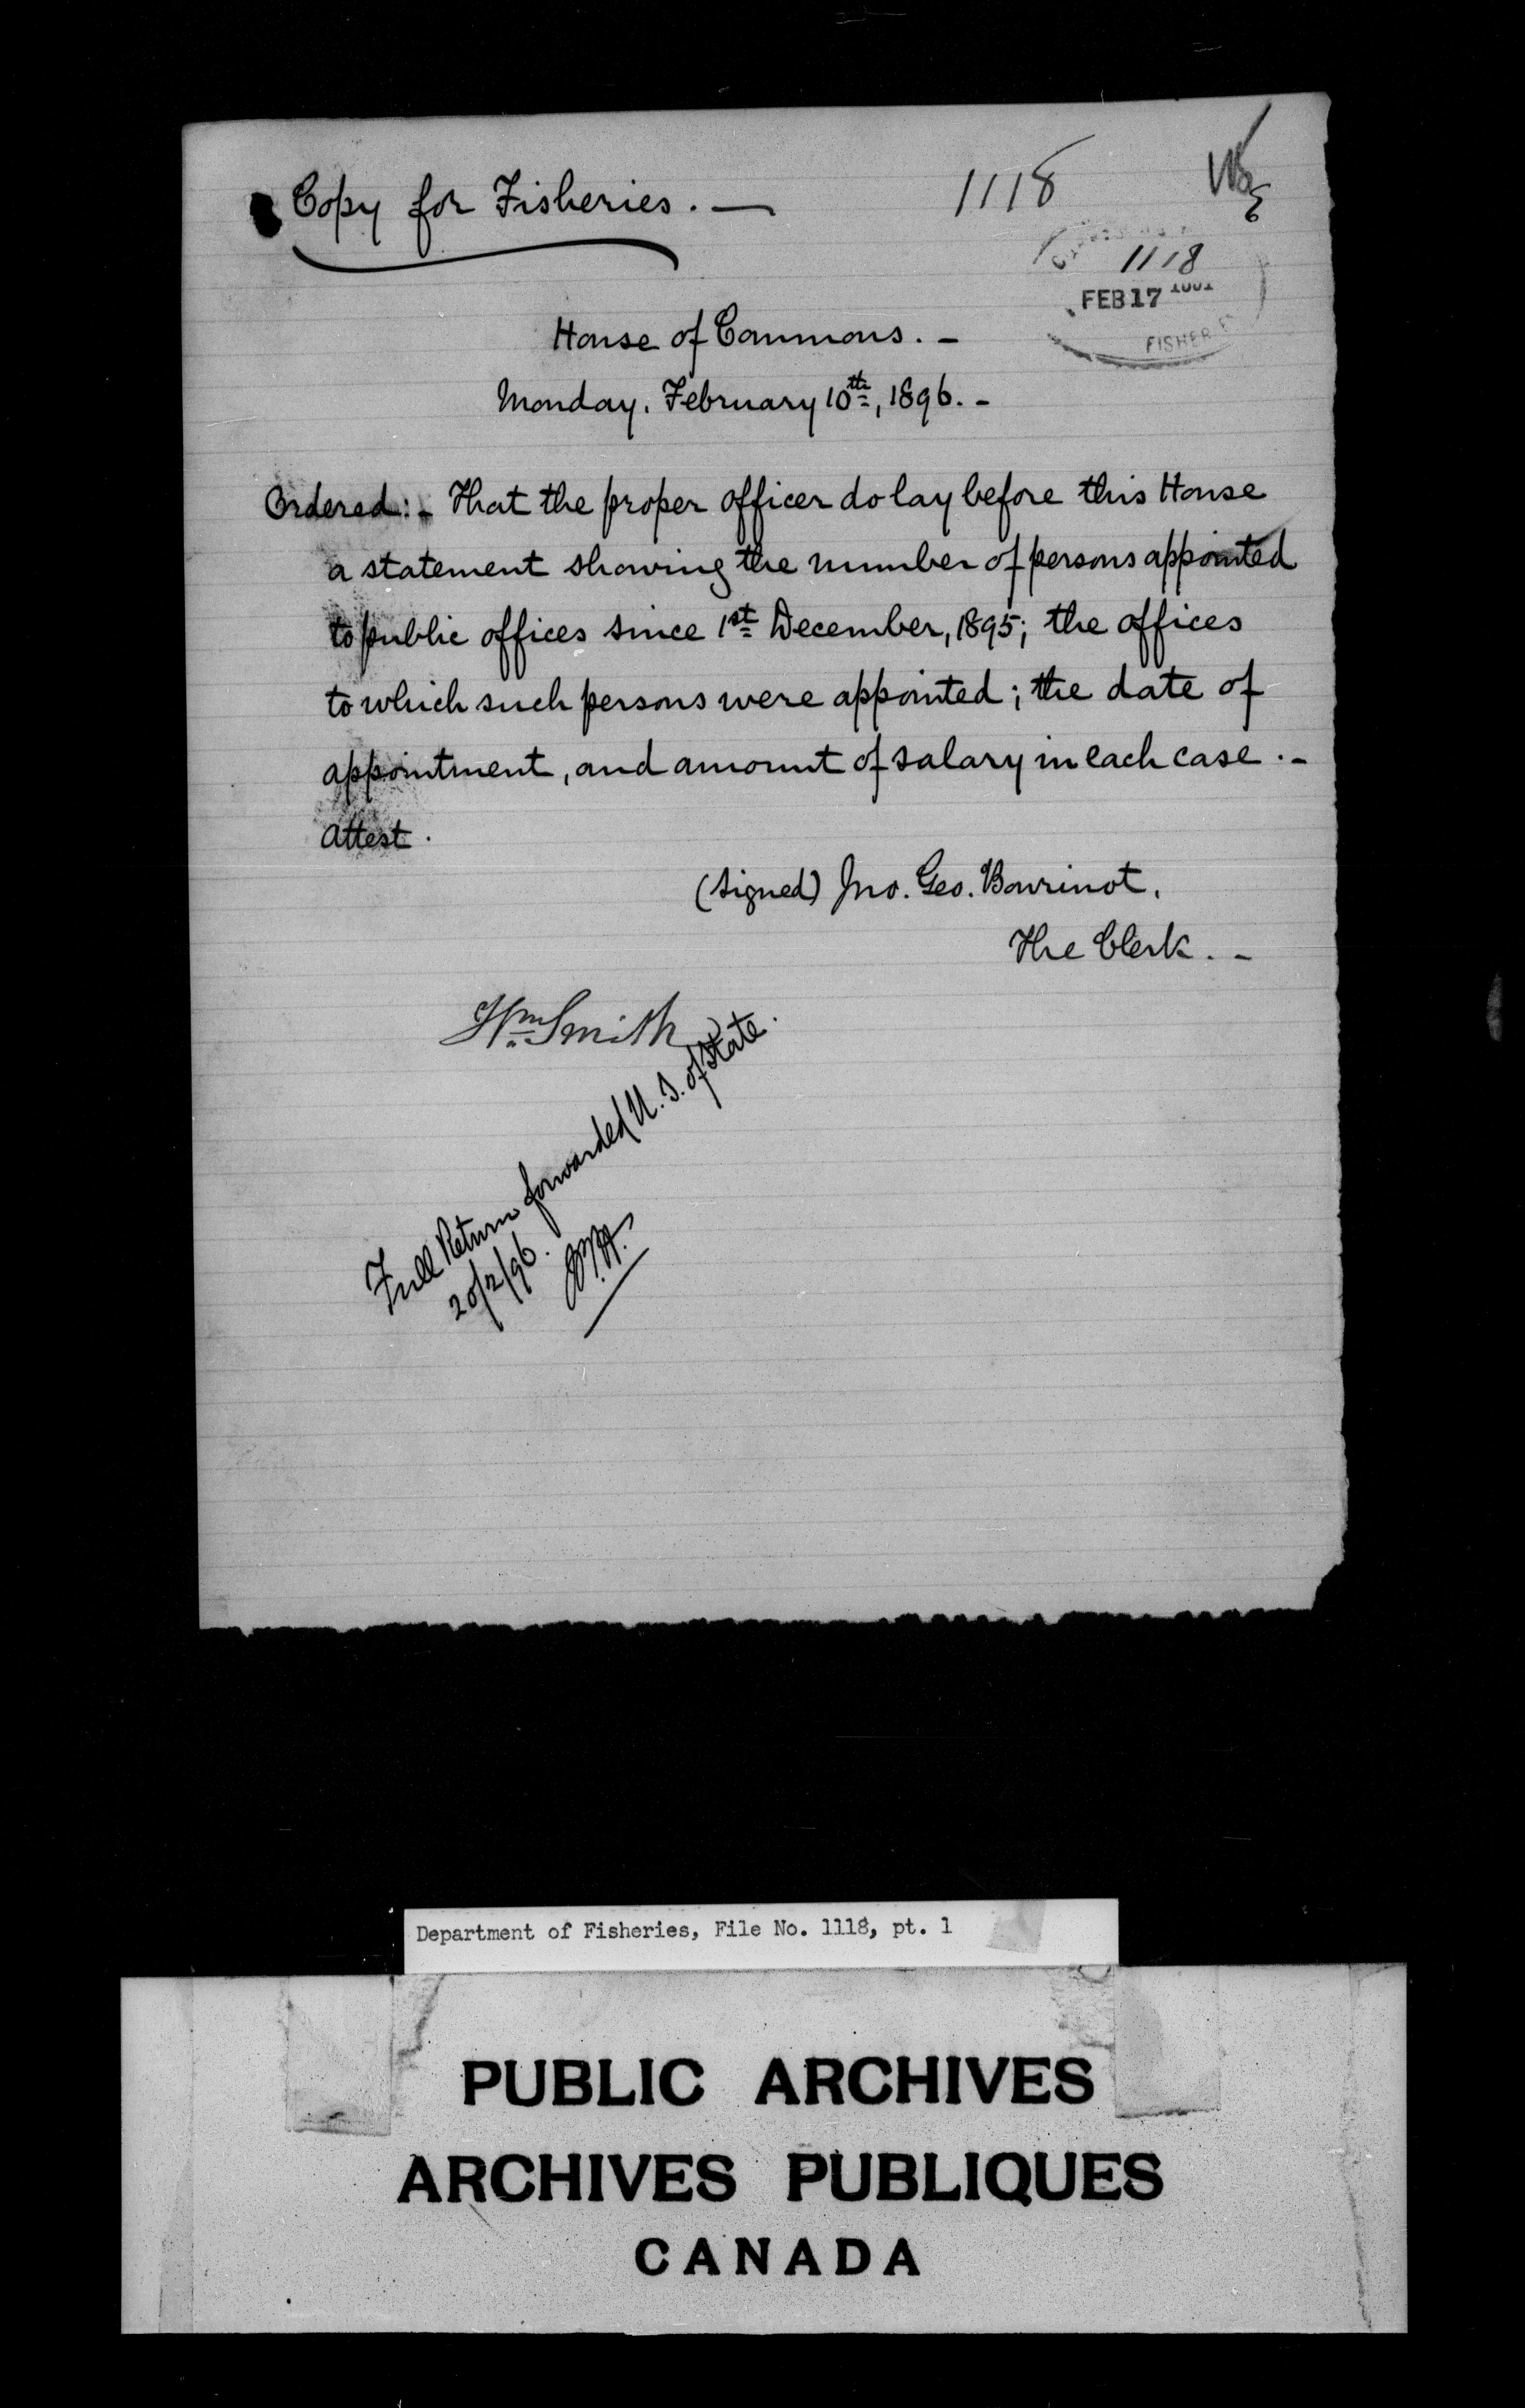 Copy for Fisheries. —
1118
1118
FEB 17
FISHER
House of Commons. –
Monday, February 10th, 1896. –
Ordered: – That the proper officer do lay before this House
a statement showing the number of persons appointed
to public offices since 1st December, 1895; the offices
to which such persons were appointed; the date of
appointment, and amount of salary in each case. –
Attest.
(Signed) Jno. Geo. Bourinot.
The Clerk. –
Wm Smith
Full Return forwarded U. S. of State.
20/2/96.
Department of Fisheries, File No. 1118, pt. 1
PUBLIC ARCHIVES
ARCHIVES PUBLIQUES
CANADA